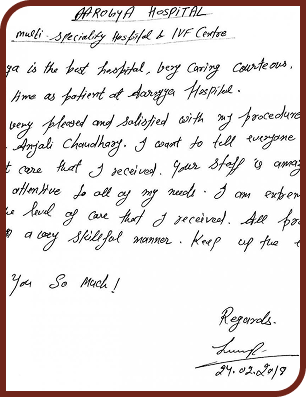 AAROGYA HOSPITAL
multi-speciality Hospital & IVF Centre
ya is the best hospital, very caring courteous,
time as patient at Aarogya Hospital.
very pleased and satisfied with my procedure
Anjali Chaudhary. I want to tell everyone
t care that I received. Your staff is amaz
attentive to all of my needs. I am extrem
e level of care that I received. All pro
n a very skillful manner. Keep up the
You So Much!
Regards.
24.02.2019